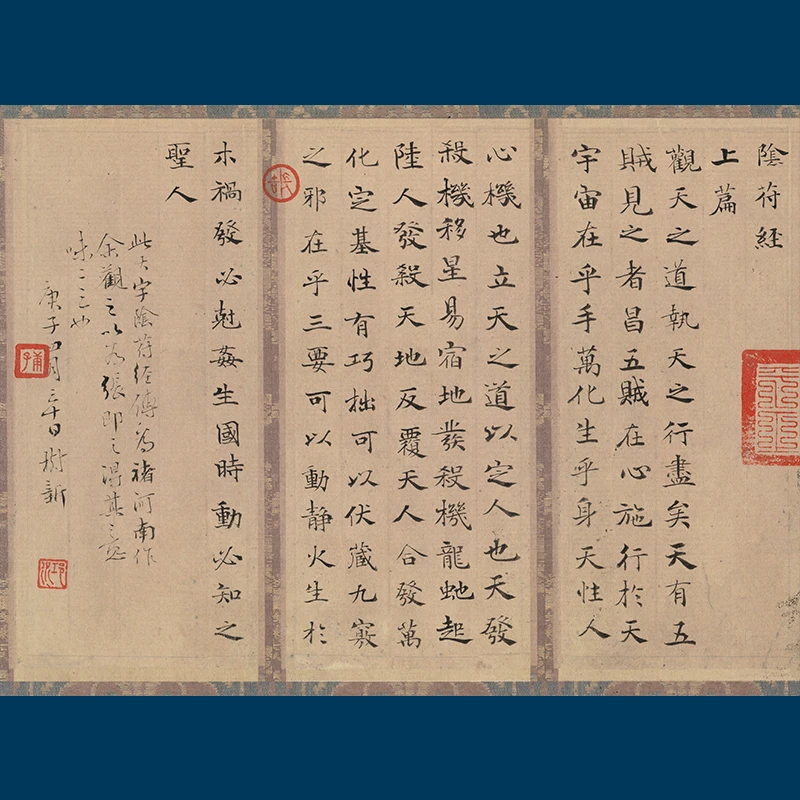 陰符經
上篇
觀天之道執天之行盡矣天有五
賊見之者昌五賊在心施行於天
宇宙在乎手萬化生乎身天性人
心機也立天之道以定人也天發
殺機移星易宿地發殺機龍虵起
陸人發殺天地反覆天人合發萬
化定基性有巧拙可以伏藏九竅
之邪在乎三要可以動静火生於
木禍發必尅姦生國時動必知之
聖人
此大字陰符經傳為褚河南作
余觀之以為張即之得其
庚子四月三十日